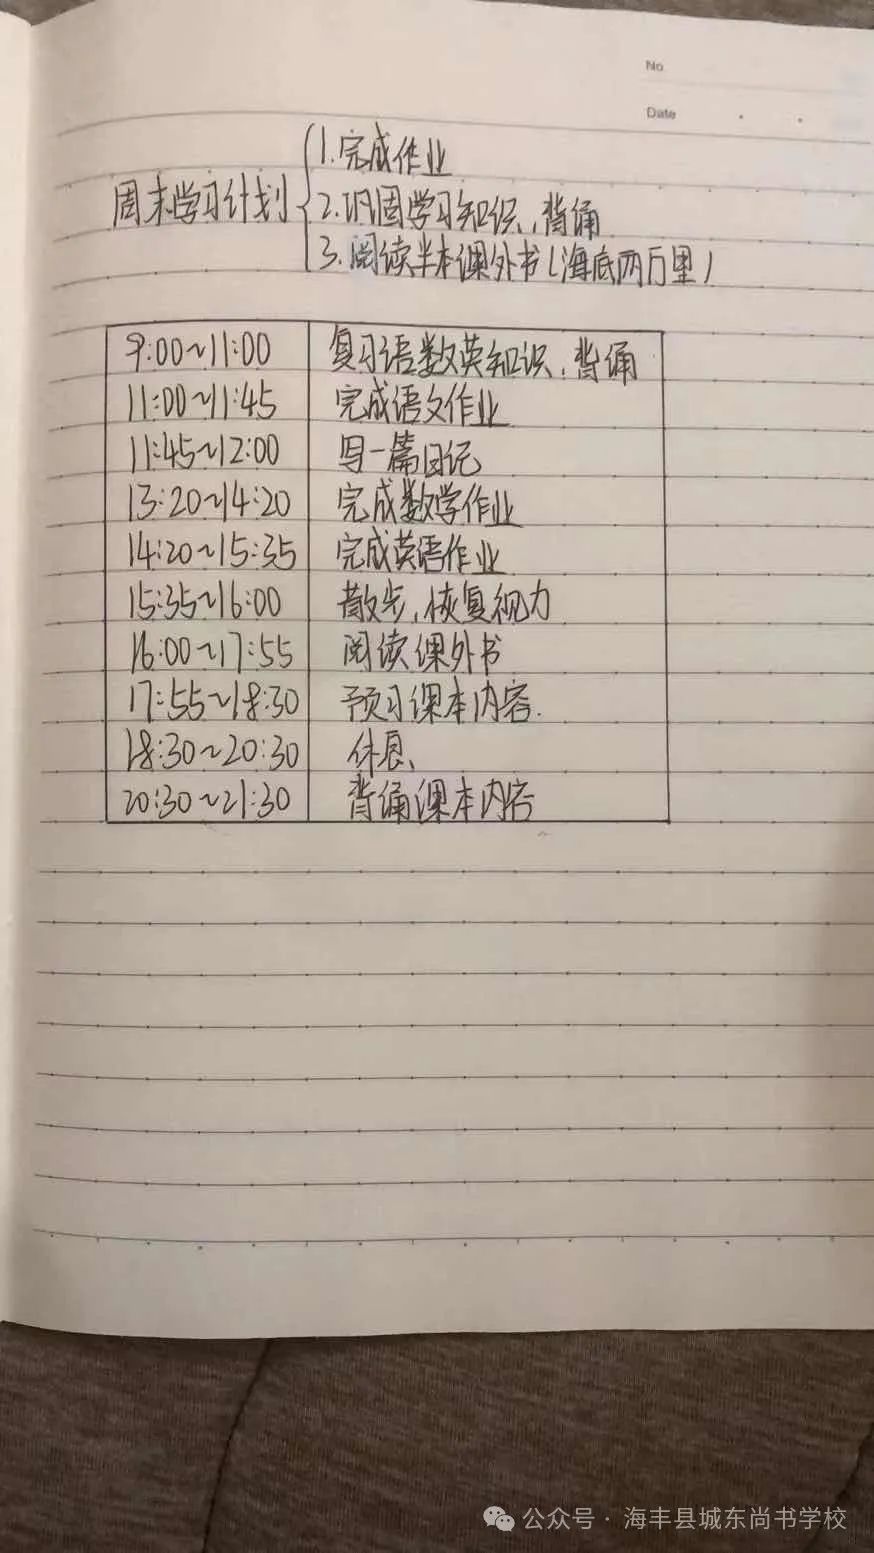 No
Date
周末学习计划
1.完成作业
2.巩固学习知识,背诵
3.阅读半本课外书(海底两万里)
9:00~11:00 复习语数英知识,背诵
11:00~11:45 完成语文作业
11:45~12:00 写一篇日记
13:20~14:20 完成数学作业
14:20~15:35 完成英语作业
15:35~16:00 散步,恢复视力
16:00~17:55 阅读课外书
17:55~18:30 预习课本内容.
18:30~20:30 休息、
20:30~21:30 背诵课本内容
公众号·海丰县城东尚书学校